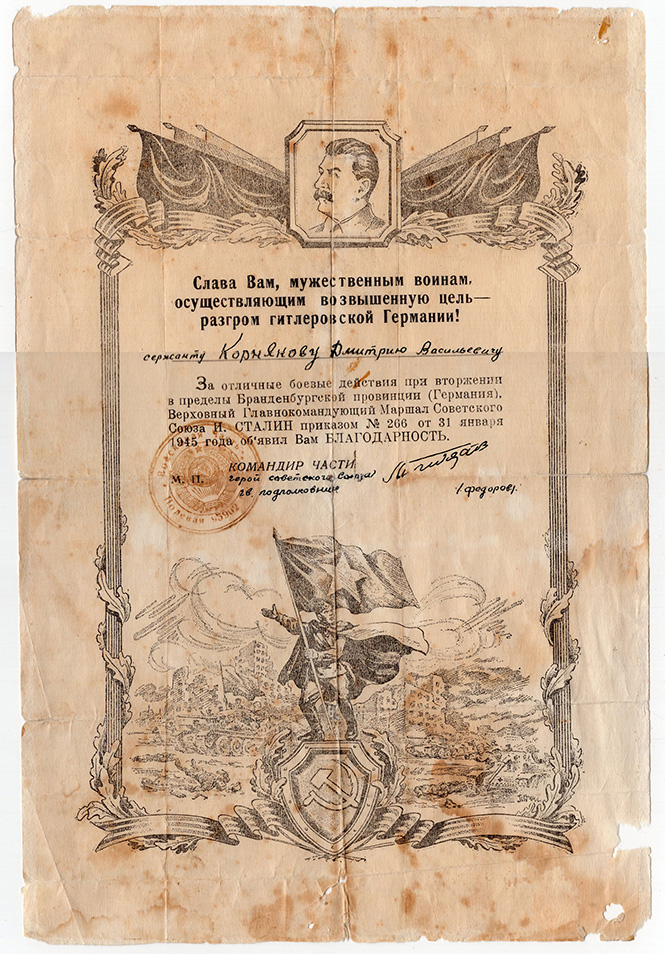 Слава Вам, мужественным воинам,
осуществляющим возвышенную цель—
разгром гитлеровской Германии!
сержанту Корнякову Дмитрию Васильевичу
За отличные боевые действия при вторжении
в пределы Бранденбургской провинции (Германия),
Верховный Главнокомандующий Маршал Советского
Союза И. СТАЛИН приказом № 266 от 31 января
1945 года об'явил Вам БЛАГОДАРНОСТЬ.
КОМАНДИР ЧАСТИ
М. П. герой советского союза
гв. подполковник /федоров/.
Полевая